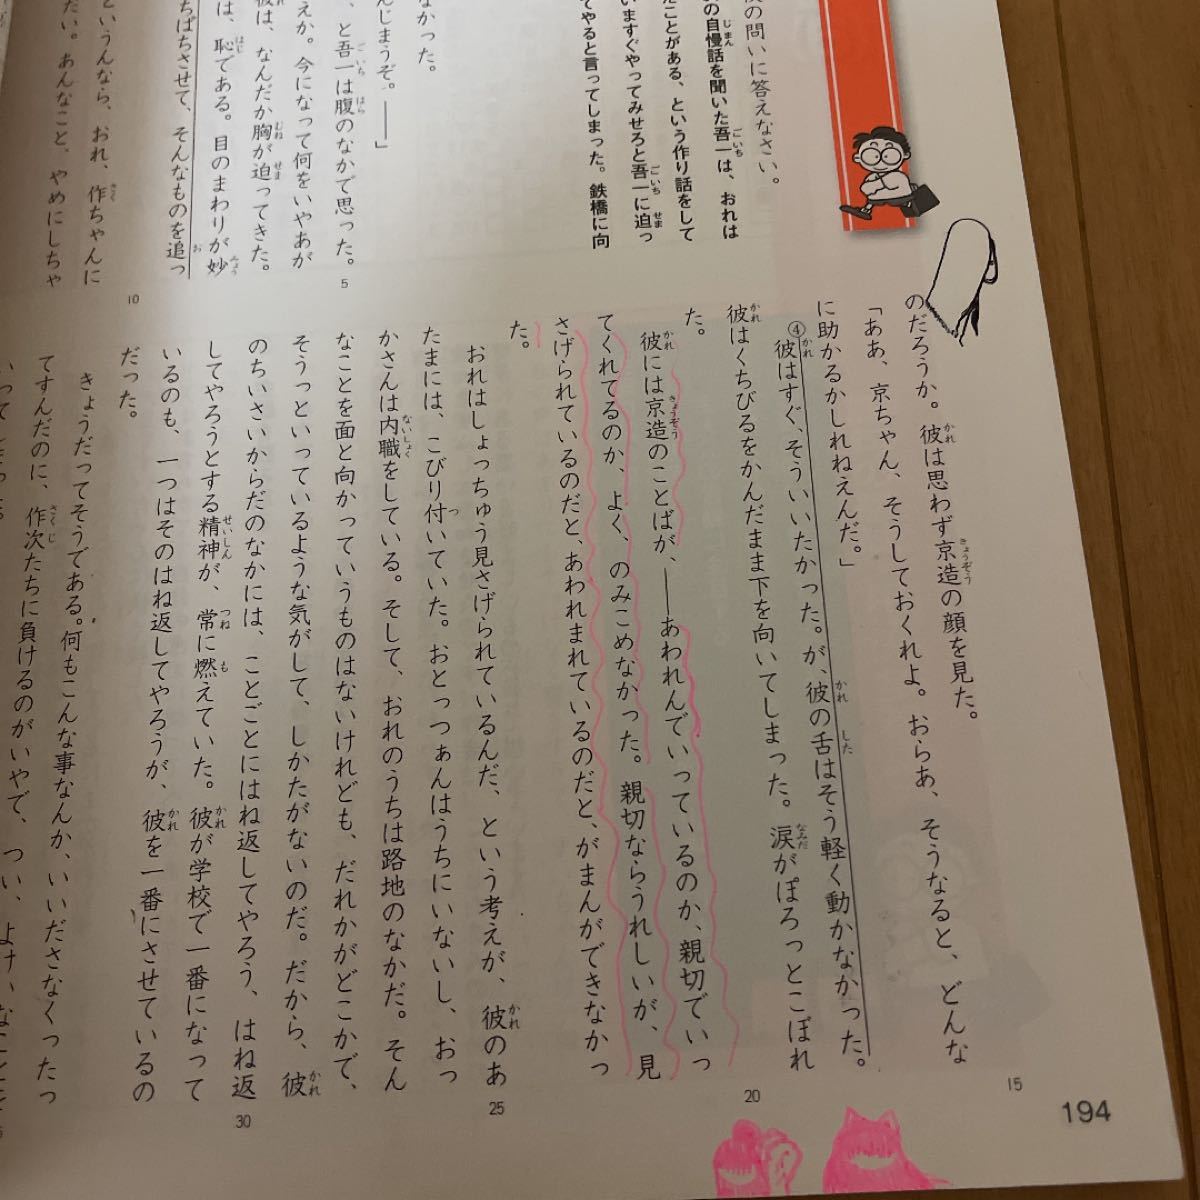 の問いに答えなさい。
の自慢話を聞いた吾一は、おれは
ことがある、という作り話をして
いますぐやってみせろと吾一に迫っ
てやると言ってしまった。鉄橋に向
なかった。
んじまうぞ。――」
、と吾一は腹のなかで思った。
えか。今になって何をいやあが
彼は、なんだか胸が迫ってきた。
は、恥である。目のまわりが妙
ちばちさせて、そんなものを追っ
というんなら、おれ、作ちゃんに
だい。あんなこと、やめにしちゃ
5
10
のだろうか。彼は思わず京造の顔を見た。
「ああ、京ちゃん、そうしておくれよ。おらあ、そうなると、どんな
に助かるかしれねえんだ。」
④彼はすぐ、そういいたかった。が、彼の舌はそう軽く動かなかった。
彼はくちびるをかんだまま下を向いてしまった。涙がぽろっとこぼれ
た。
彼には京造のことばが、――あわれんでいっているのか、親切でいっ
てくれてるのか、よく、のみこめなかった。親切ならうれしいが、見
さげられているのだと、あわれまれているのだと、がまんができなかっ
た。
おれはしょっちゅう見さげられているんだ、という考えが、彼のあ
たまには、こびり付いていた。おとっつぁんはうちにいないし、おっ
かさんは内職をしている。そして、おれのうちは路地のなかだ。そん
なことを面と向かっていうものはないけれども、だれかがどこかで、
そうっといっているような気がして、しかたがないのだ。だから、彼
のちいさいからだのなかには、ことごとにはね返してやろう、はね返
してやろうとする精神が、常に燃えていた。彼が学校で一番になって
いるのも、一つはそのはね返してやろうが、彼を一番にさせているの
だった。
きょうだってそうである。何もこんな事なんか、いいださなくったっ
てすんだのに、作次たちに負けるのがいやで、つい、よけいなことを
15
20
25
30
194